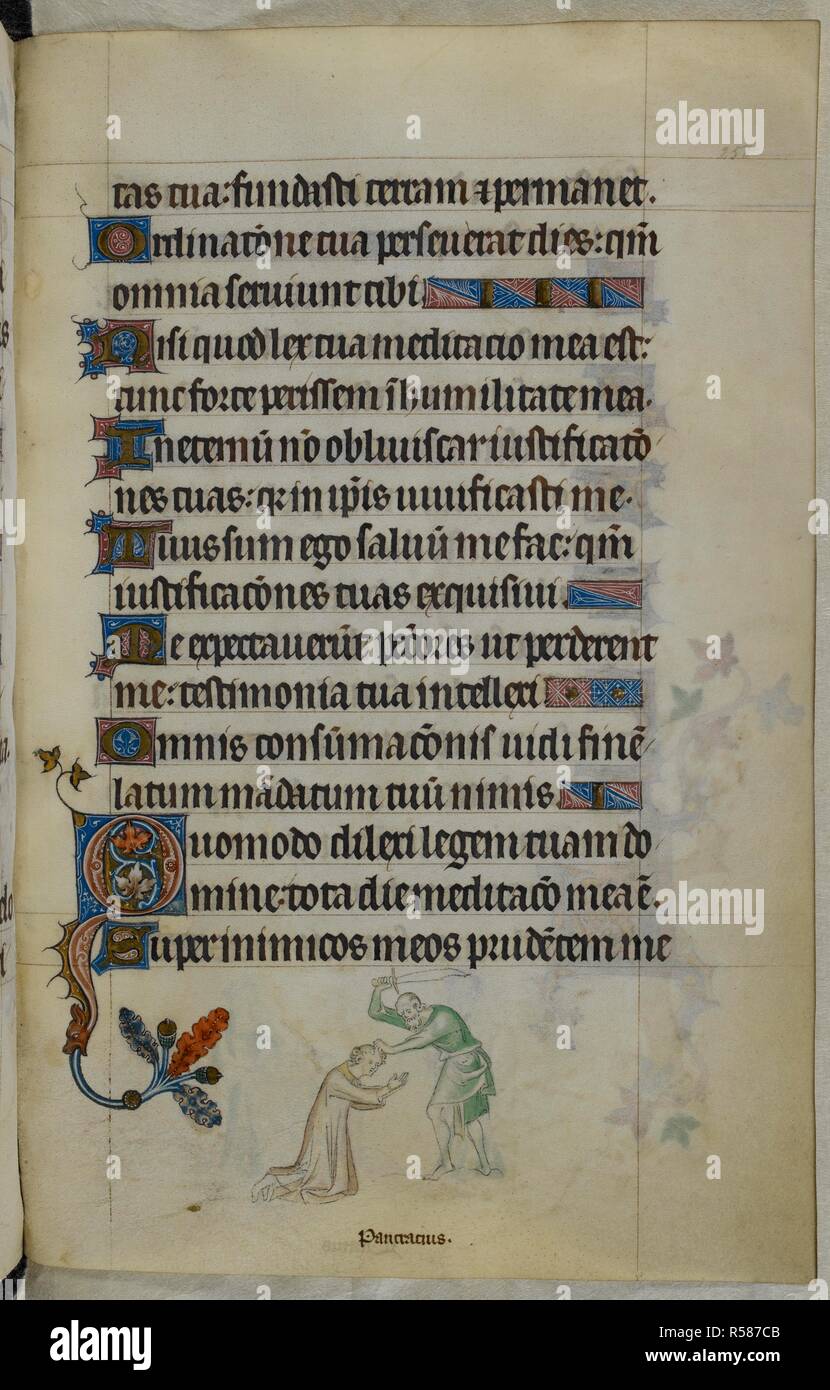 tas tua: fundasti terram ⁊ permanet.
Ordinatõne tua perseuerat dies: qm̃
omnia seruiunt tibi
Nisi quod lex tua meditacio mea est:
tunc forte perissem ĩ humilitate mea.
In eternũ nõ obliuiscar iustificatõ
nes tuas: qr in ip̃is uiuificasti me.
Tuus sum ego saluũ me fac: qm̃
iustificatõnes tuas exquisiui.
Me expectauerũt pctõres ut perderent
me: testimonia tua intellexi
Omnis consũmatõnis uidi finẽ
latum mãdatum tuũ nimis.
Quomodo dilexi legem tuam do
mine: tota die meditatõ mea ẽ.
Super inimicos meos prudẽtem me
Pancracius.
alamy
Image ID: R587CB
www.alamy.com